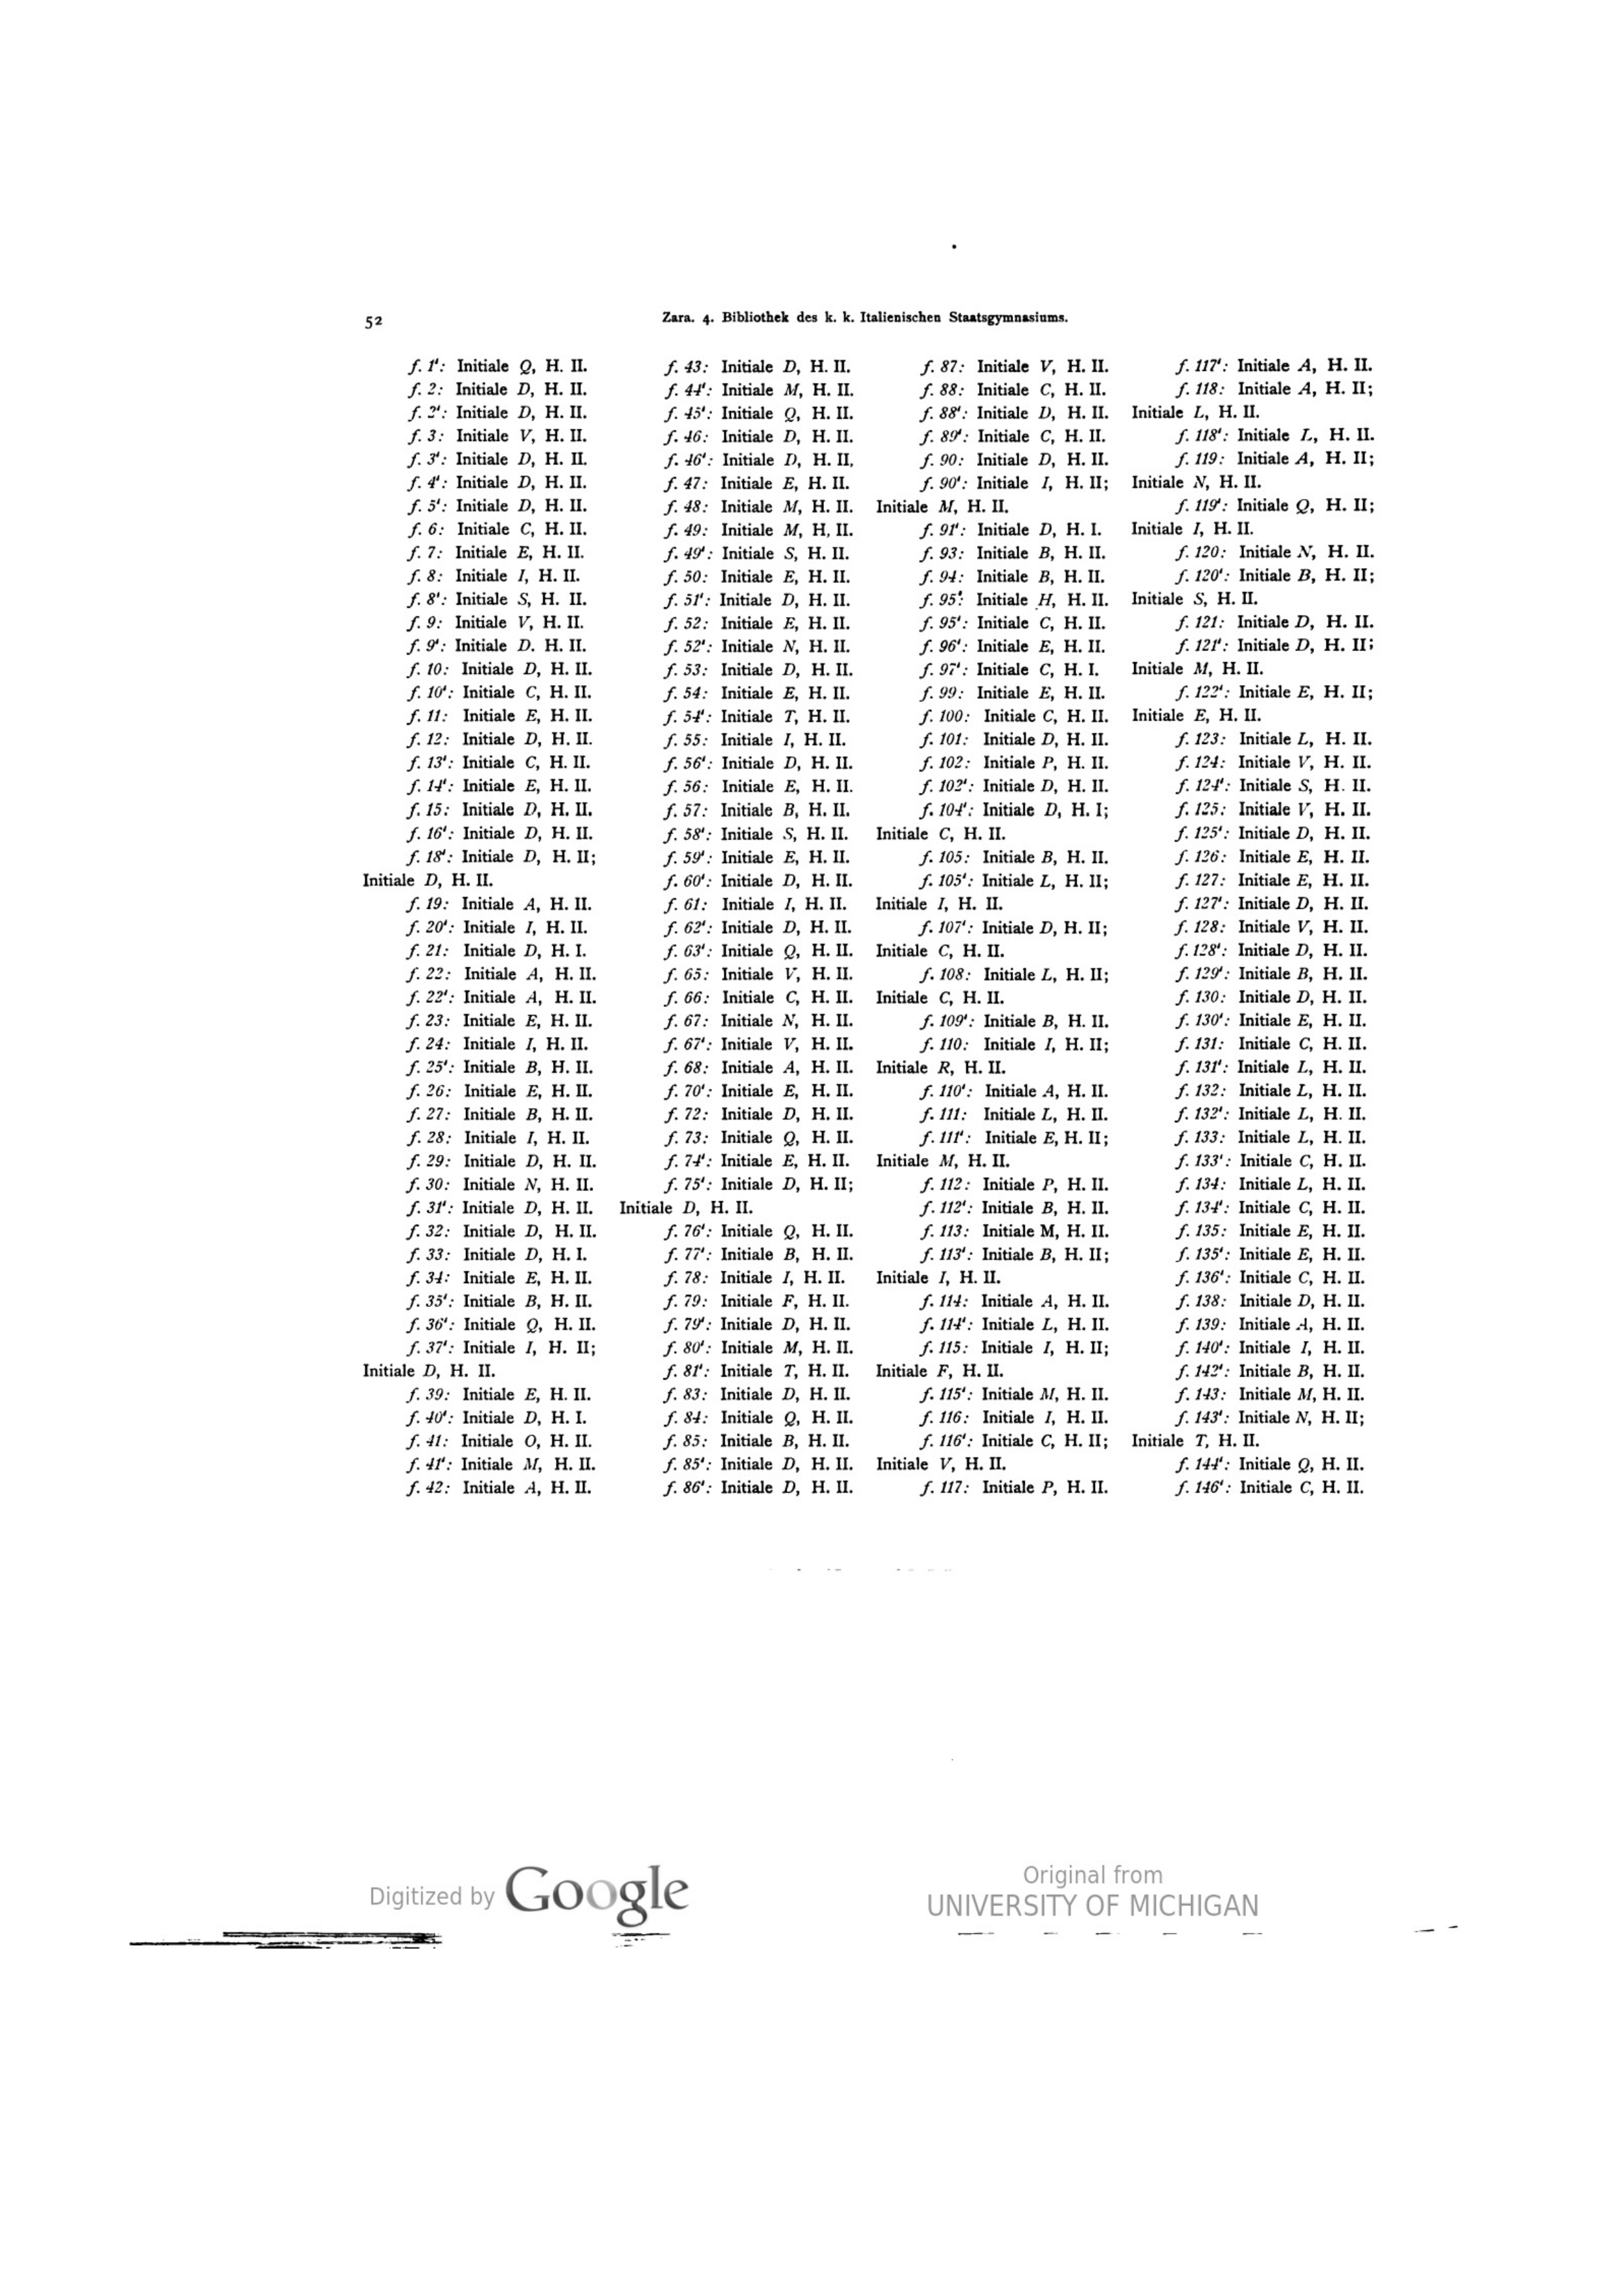 52
Zara. 4. Bibliothek des k. k. Italienischen Staatsgymnasiums.
f. 1': Initiale Q, H. II.
f. 2: Initiale D, H. II.
f. 2': Initiale D, H. II.
f. 3: Initiale V, H. II.
f. 3': Initiale D, H. II.
f. 4': Initiale D, H. II.
f. 5': Initiale D, H. II.
f. 6: Initiale C, H. II.
f. 7: Initiale E, H. II.
f. 8: Initiale I, H. II.
f. 8': Initiale S, H. II.
f. 9: Initiale V, H. II.
f. 9': Initiale D. H. II.
f. 10: Initiale D, H. II.
f. 10': Initiale C, H. II.
f. 11: Initiale E, H. II.
f. 12: Initiale D, H. II.
f. 13': Initiale C, H. II.
f. 14': Initiale E, H. II.
f. 15: Initiale D, H. II.
f. 16': Initiale D, H. II.
f. 18': Initiale D, H. II;
Initiale D, H. II.
f. 19: Initiale A, H. II.
f. 20': Initiale I, H. II.
f. 21: Initiale D, H. I.
f. 22: Initiale A, H. II.
f. 22': Initiale A, H. II.
f. 23: Initiale E, H. II.
f. 24: Initiale I, H. II.
f. 25': Initiale B, H. II.
f. 26: Initiale E, H. II.
f. 27: Initiale B, H. II.
f. 28: Initiale I, H. II.
f. 29: Initiale D, H. II.
f. 30: Initiale N, H. II.
f. 31': Initiale D, H. II.
f. 32: Initiale D, H. II.
f. 33: Initiale D, H. I.
f. 34: Initiale E, H. II.
f. 35': Initiale B, H. II.
f. 36': Initiale Q, H. II.
f. 37': Initiale I, H. II;
Initiale D, H. II.
f. 39: Initiale E, H. II.
f. 40': Initiale D, H. I.
f. 41: Initiale O, H. II.
f. 41': Initiale M, H. II.
f. 42: Initiale A, H. II.
f. 43: Initiale D, H. II.
f. 44': Initiale M, H. II.
f. 45': Initiale Q, H. II.
f. 46: Initiale D, H. II.
f. 46': Initiale D, H. II,
f. 47: Initiale E, H. II.
f. 48: Initiale M, H. II.
f. 49: Initiale M, H, II.
f. 49': Initiale S, H. II.
f. 50: Initiale E, H. II.
f. 51': Initiale D, H. II.
f. 52: Initiale E, H. II.
f. 52': Initiale N, H. II.
f. 53: Initiale D, H. II.
f. 54: Initiale E, H. II.
f. 54': Initiale T, H. II.
f. 55: Initiale I, H. II.
f. 56': Initiale D, H. II.
f. 56: Initiale E, H. II.
f. 57: Initiale B, H. II.
f. 58': Initiale S, H. II.
f. 59': Initiale E, H. II.
f. 60': Initiale D, H. II.
f. 61: Initiale I, H. II.
f. 62': Initiale D, H. II.
f. 63': Initiale Q, H. II.
f. 65: Initiale V, H. II.
f. 66: Initiale C, H. II.
f. 67: Initiale N, H. II.
f. 67': Initiale V, H. II.
f. 68: Initiale A, H. II.
f. 70': Initiale E, H. II.
f. 72: Initiale D, H. II.
f. 73: Initiale Q, H. II.
f. 74': Initiale E, H. II.
f. 75': Initiale D, H. II;
Initiale D, H. II.
f. 76': Initiale Q, H. II.
f. 77': Initiale B, H. II.
f. 78: Initiale I, H. II.
f. 79: Initiale F, H. II.
f. 79': Initiale D, H. II.
f. 80': Initiale M, H. II.
f. 81': Initiale T, H. II.
f. 83: Initiale D, H. II.
f. 84: Initiale Q, H. II.
f. 85: Initiale B, H. II.
f. 85': Initiale D, H. II.
f. 86': Initiale D, H. II.
f. 87: Initiale V, H. II.
f. 88: Initiale C, H. II.
f. 88': Initiale D, H. II.
f. 89': Initiale C, H. II.
f. 90: Initiale D, H. II.
f. 90': Initiale I, H. II;
Initiale M, H. II.
f. 91': Initiale D, H. I.
f. 93: Initiale B, H. II.
f. 94: Initiale B, H. II.
f. 95': Initiale H, H. II.
f. 95': Initiale C, H. II.
f. 96': Initiale E, H. II.
f. 97': Initiale C, H. I.
f. 99: Initiale E, H. II.
f. 100: Initiale C, H. II.
f. 101: Initiale D, H. II.
f. 102: Initiale P, H. II.
f. 102': Initiale D, H. II.
f. 104': Initiale D, H. I;
Initiale C, H. II.
f. 105: Initiale B, H. II.
f. 105': Initiale L, H. II;
Initiale I, H. II.
f. 107': Initiale D, H. II;
Initiale C, H. II.
f. 108: Initiale L, H. II;
Initiale C, H. II.
f. 109': Initiale B, H. II.
f. 110: Initiale I, H. II;
Initiale R, H. II.
f. 110': Initiale A, H. II.
f. 111: Initiale L, H. II.
f. 111': Initiale E, H. II;
Initiale M, H. II.
f. 112: Initiale P, H. II.
f. 112': Initiale B, H. II.
f. 113: Initiale M, H. II.
f. 113': Initiale B, H. II;
Initiale I, H. II.
f. 114: Initiale A, H. II.
f. 114': Initiale L, H. II.
f. 115: Initiale I, H. II;
Initiale F, H. II.
f. 115': Initiale M, H. II.
f. 116: Initiale I, H. II.
f. 116': Initiale C, H. II;
Initiale V, H. II.
f. 117: Initiale P, H. II.
f. 117': Initiale A, H. II.
f. 118: Initiale A, H. II;
Initiale L, H. II.
f. 118': Initiale L, H. II.
f. 119: Initiale A, H. II;
Initiale N, H. II.
f. 119': Initiale Q, H. II;
Initiale I, H. II.
f. 120: Initiale N, H. II.
f. 120': Initiale B, H. II;
Initiale S, H. II.
f. 121: Initiale D, H. II.
f. 121': Initiale D, H. II;
Initiale M, H. II.
f. 122': Initiale E, H. II;
Initiale E, H. II.
f. 123: Initiale L, H. II.
f. 124: Initiale V, H. II.
f. 124': Initiale S, H. II.
f. 125: Initiale V, H. II.
f. 125': Initiale D, H. II.
f. 126: Initiale E, H. II.
f. 127: Initiale E, H. II.
f. 127': Initiale D, H. II.
f. 128: Initiale V, H. II.
f. 128': Initiale D, H. II.
f. 129': Initiale B, H. II.
f. 130: Initiale D, H. II.
f. 130': Initiale E, H. II.
f. 131: Initiale C, H. II.
f. 131': Initiale L, H. II.
f. 132: Initiale L, H. II.
f. 132': Initiale L, H. II.
f. 133: Initiale L, H. II.
f. 133': Initiale C, H. II.
f. 134: Initiale L, H. II.
f. 134': Initiale C, H. II.
f. 135: Initiale E, H. II.
f. 135': Initiale E, H. II.
f. 136': Initiale C, H. II.
f. 138: Initiale D, H. II.
f. 139: Initiale A, H. II.
f. 140': Initiale I, H. II.
f. 142': Initiale B, H. II.
f. 143: Initiale M, H. II.
f. 143': Initiale N, H. II;
Initiale T, H. II.
f. 144': Initiale Q, H. II.
f. 146': Initiale C, H. II.
Digitized by Google
Original from
UNIVERSITY OF MICHIGAN